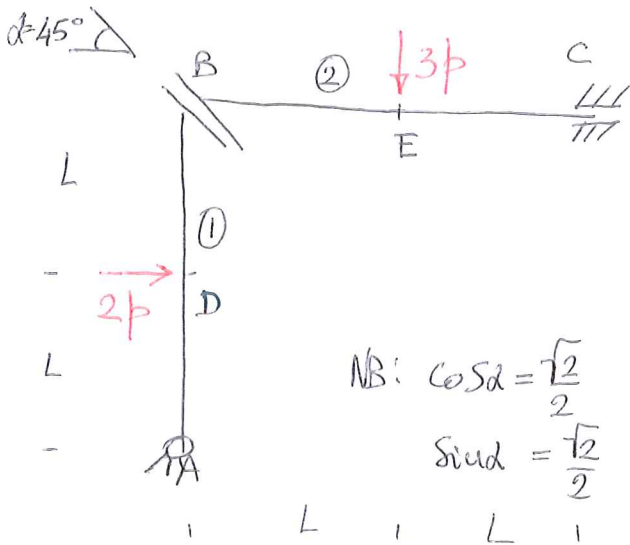 α=45°
B
②
3p
C
E
L
①
2p
D
L
NB: cosα = √2/2
A
sinα = √2/2
L
L